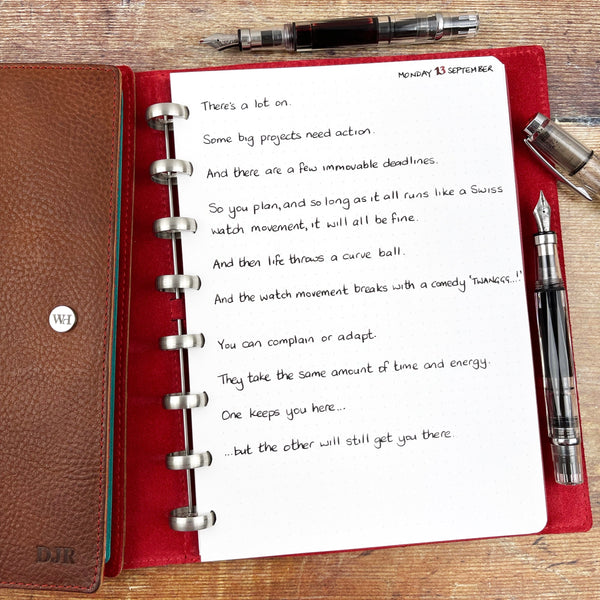 MONDAY 13 SEPTEMBER
There's a lot on.
Some big projects need action.
And there are a few immovable deadlines.
So you plan, and so long as it all runs like a Swiss
watch movement, it will all be fine.
And then life throws a curve ball.
And the watch movement breaks with a comedy 'TWANGGG...!'
You can complain or adapt.
They take the same amount of time and energy.
One keeps you here...
...but the other will still get you there.
WH
DJR